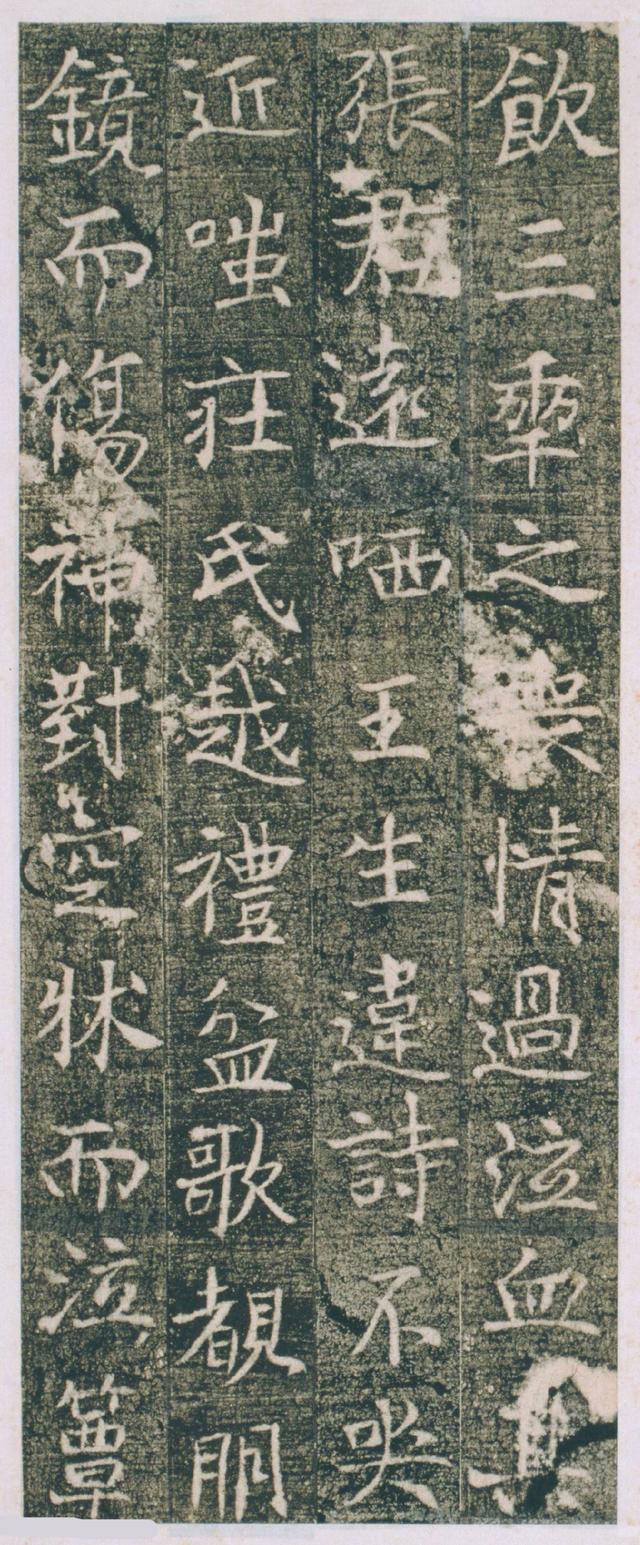 飲三乖之誤情過泣血其
張君遠哂王生違詩不哭
近嗤莊氏越禮盆歌覩朋
鏡而傷神對空牀而泣簟